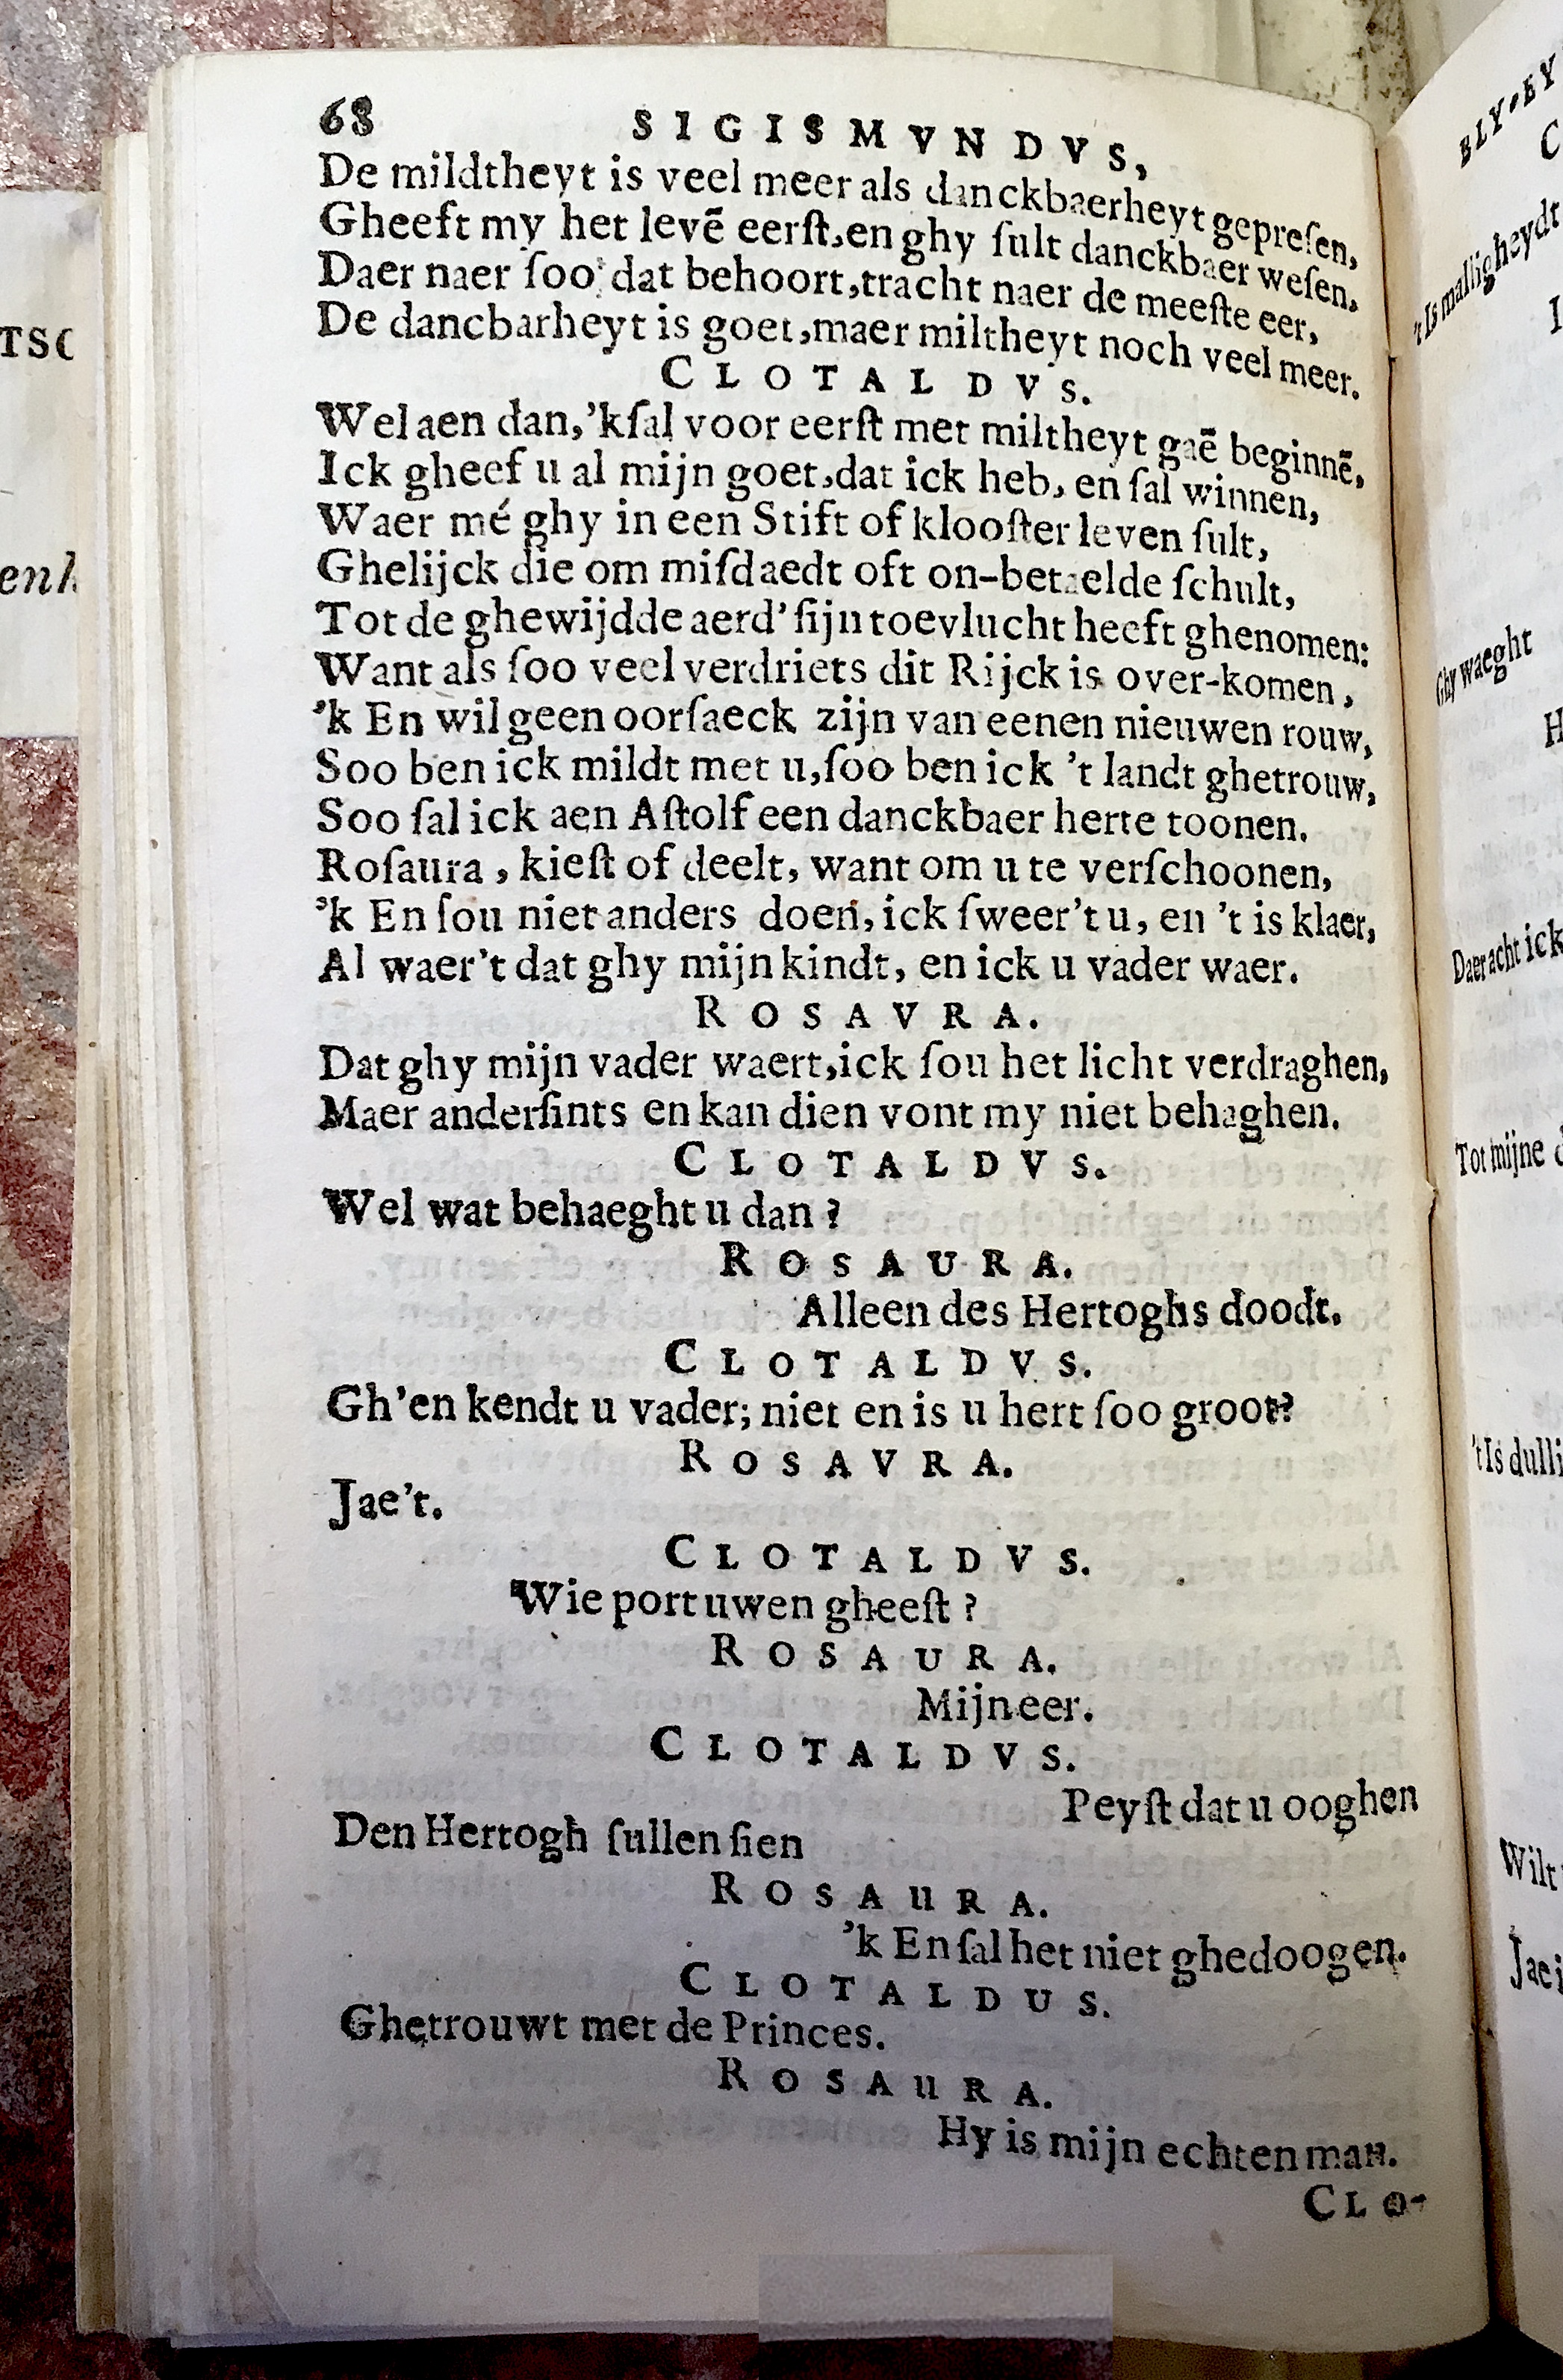 68 SIGISMVNDVS,
De mildtheyt is veel meer als danckbaerheyt gepreſen,
Gheeft my het levē eerſt, en ghy ſult danckbaer weſen,
Daer naer ſoo dat behoort, tracht naer de meeſte eer,
De dancbarheyt is goet, maer miltheyt noch veel meer.
CLOTALDVS.
Wel aen dan, 'k ſal voor eerſt met miltheyt gaē beginnē,
Ick gheef u al mijn goet, dat ick heb, en ſal winnen,
Waer mé ghy in een Stift of klooſter leven ſult,
Ghelijck die om miſdaedt oft on-betaelde ſchult,
Tot de ghewijdde aerd' ſijn toevlucht heeft ghenomen:
Want als ſoo veel verdriets dit Rijck is over-komen,
'k En wil geen oorſaeck zijn van eenen nieuwen rouw,
Soo ben ick mildt met u, ſoo ben ick 't landt ghetrouw,
Soo ſal ick aen Aſtolf een danckbaer herte toonen.
Roſaura, kieſt of deelt, want om u te verſchoonen,
'k En ſou niet anders doen, ick ſweer't u, en 't is klaer,
Al waer't dat ghy mijn kindt, en ick u vader waer.
ROSAVRA.
Dat ghy mijn vader waert, ick ſou het licht verdraghen,
Maer anderſints en kan dien vont my niet behaghen.
CLOTALDVS.
Wel wat behaeght u dan?
ROSAURA.
Alleen des Hertoghs doodt.
CLOTALDVS.
Gh'en kendt u vader; niet en is u hert ſoo groot?
ROSAVRA.
Jae't.
CLOTALDVS.
Wie port uwen gheeſt?
ROSAURA.
Mijn eer.
CLOTALDVS.
Peyſt dat u ooghen
Den Hertogh ſullen ſien
ROSAURA.
'k En ſal het niet ghedoogen.
CLOTALDUS.
Ghetrouwt met de Princes.
ROSAURA.
Hy is mijn echten man.
CLO-
TSC
enk
BLY-EY
C
't Is malligheydt
I
Ghy waeght
H
Daer acht ick
Tot mijne
't Is dulli
Wilt
Jae i